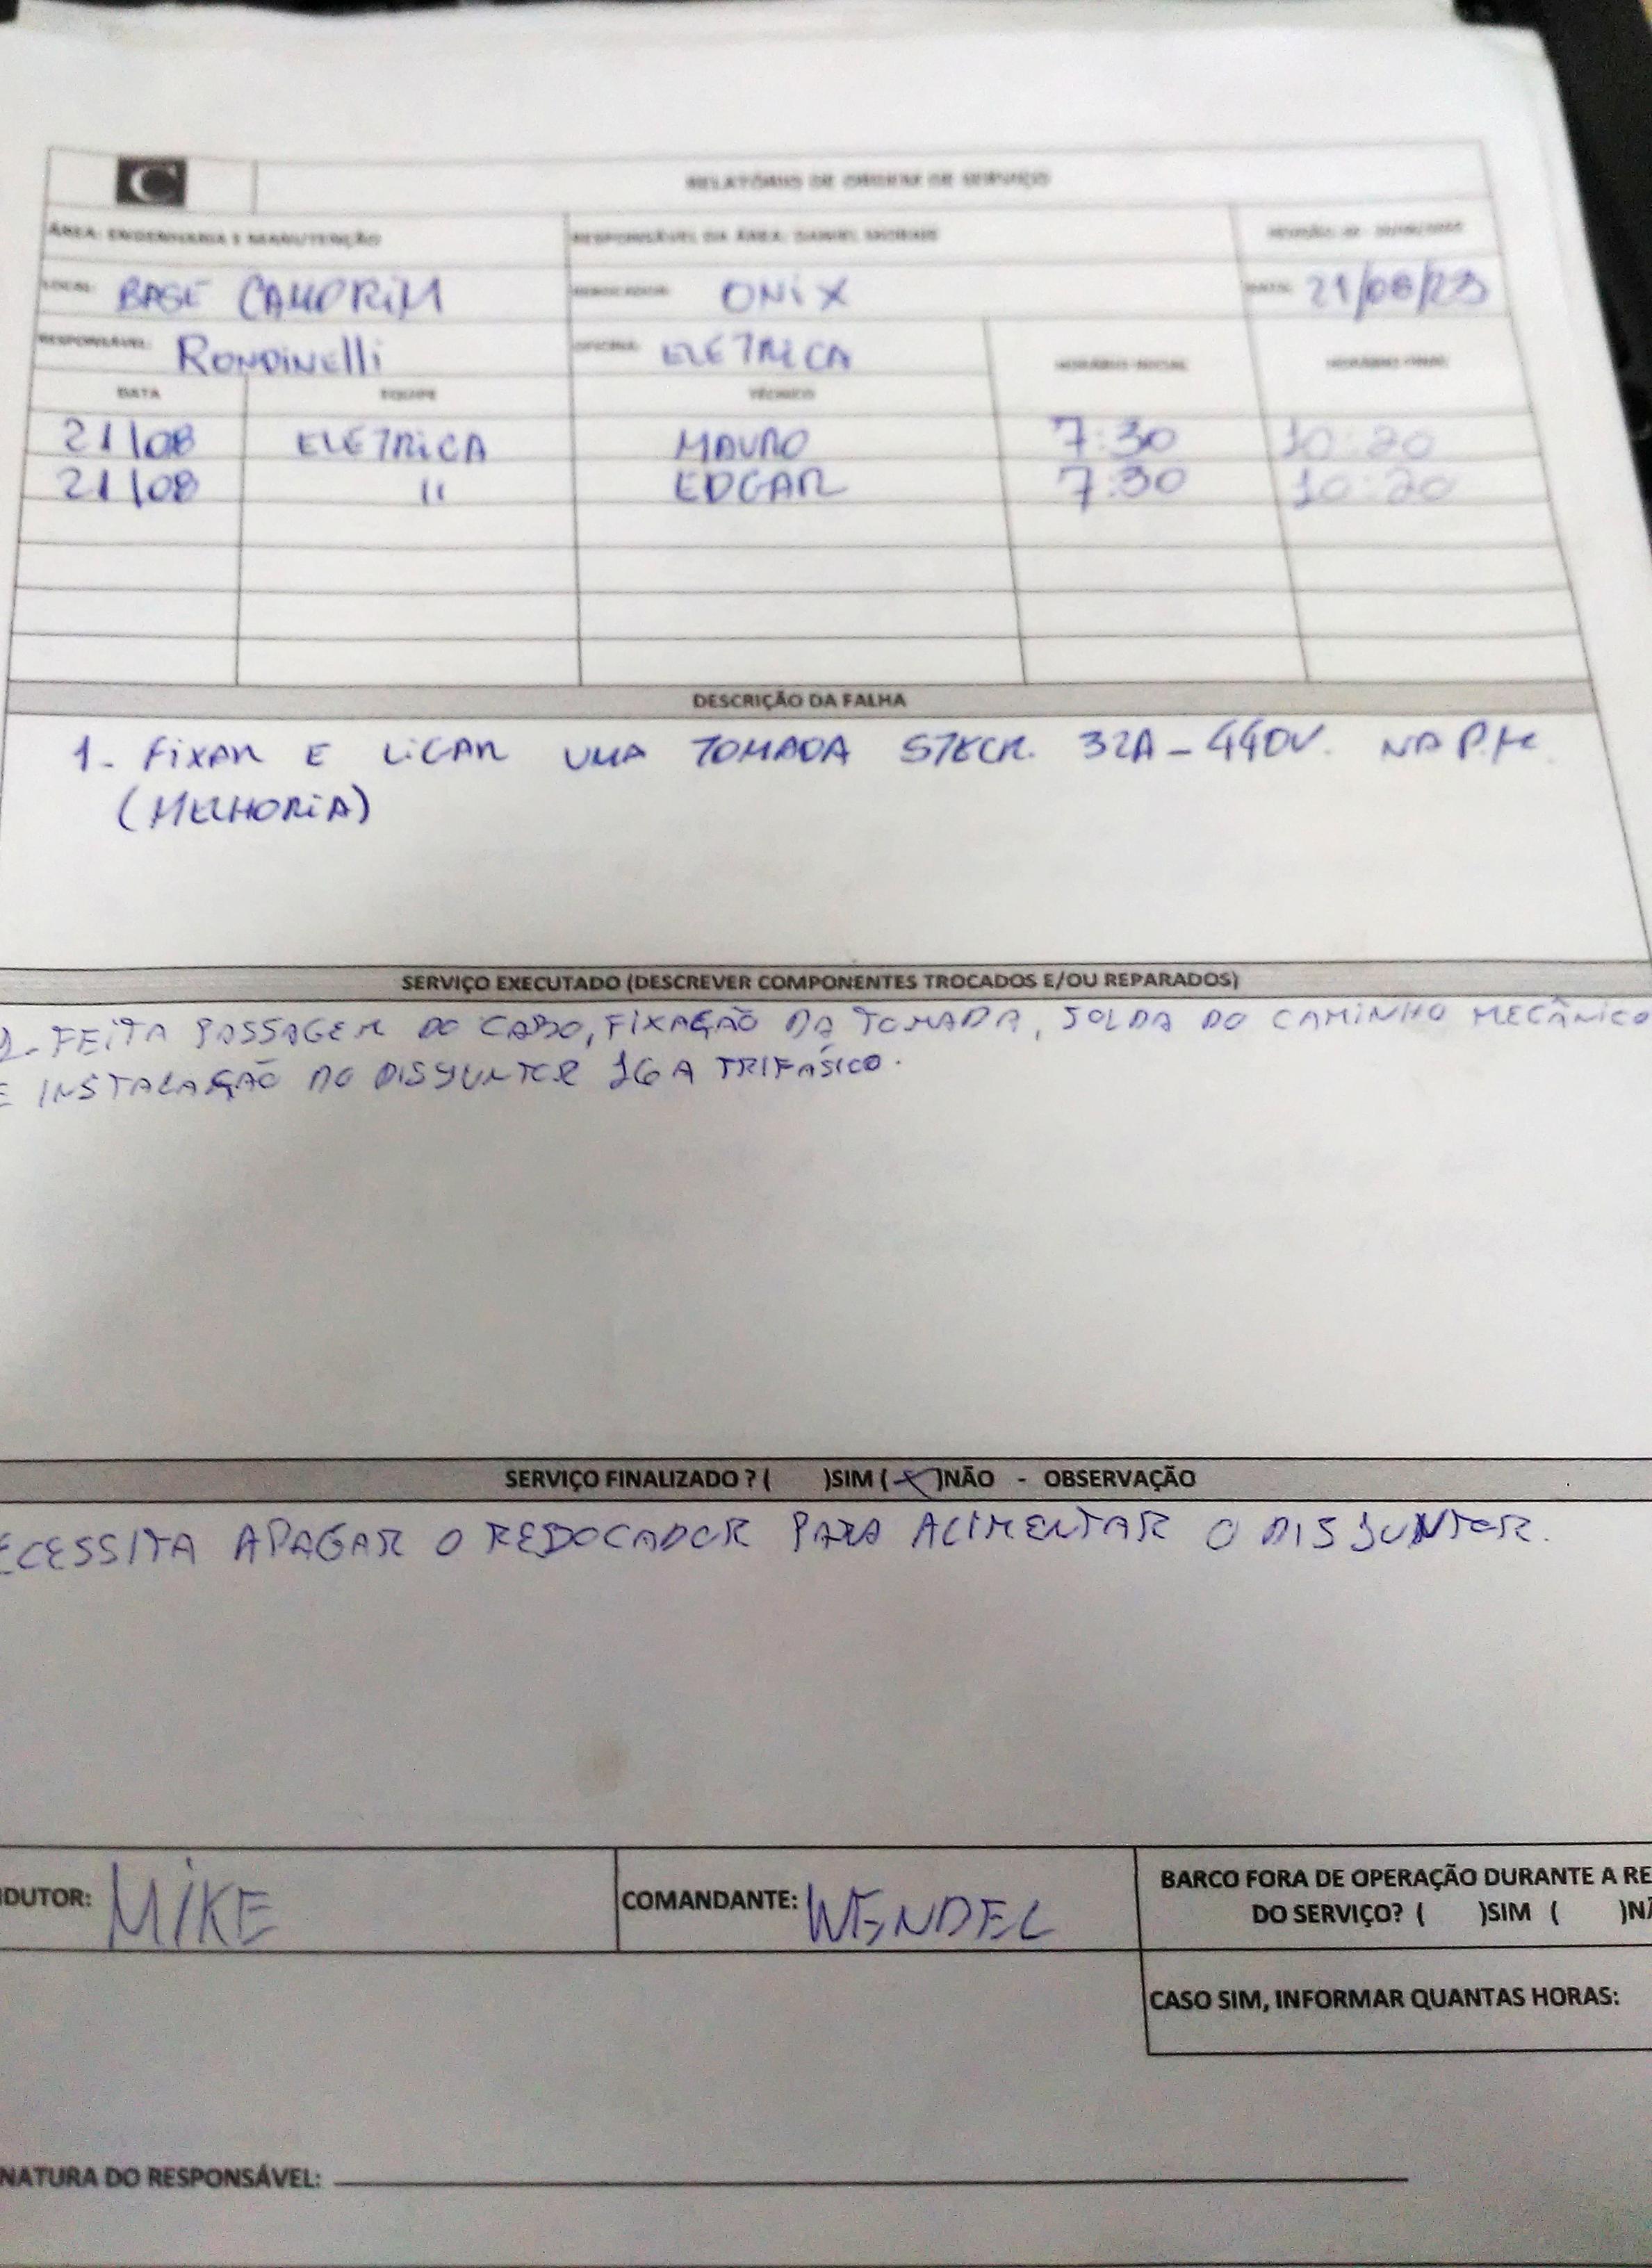 C
RELATÓRIO DE ORDEM DE SERVIÇO
ÁREA: ENGENHARIA E MANUTENÇÃO RESPONSÁVEL DA ÁREA: DANIEL MORAIS
LOCAL: BASE CAMORIM REBOCADOR: ONIX DATA: 21/08/23
RESPONSÁVEL: RONDINElli OFICINA: ELETRICA HORÁRIO INICIAL HORÁRIO FINAL
DATA EQUIPE TÉCNICO
21/08 ELETRICA MAURO 7:30 10:20
21/08 11 EDGAR 7:30 10:20
DESCRIÇÃO DA FALHA
1- FIXAR E LIGAR UMA TOMADA STECK. 32A-440V. NA P.M.
(MELHORIA)
SERVIÇO EXECUTADO (DESCREVER COMPONENTES TROCADOS E/OU REPARADOS)
1-FEITA PASSAGEM DO CABO, FIXAÇÃO DA TOMADA, SOLDA DO CAMINHO MECÂNICO
E INSTALAÇÃO DO DISJUNTOR 16A TRIFÁSICO.
SERVIÇO FINALIZADO ? ( )SIM (X)NÃO - OBSERVAÇÃO
ECESSITA APAGAR O REBOCADOR PARA ALIMENTAR O DISJUNTOR.
DUTOR: MIKE COMANDANTE: WENDEL BARCO FORA DE OPERAÇÃO DURANTE A RE
DO SERVIÇO? ( )SIM ( )NÃ
CASO SIM, INFORMAR QUANTAS HORAS:
NATURA DO RESPONSÁVEL: